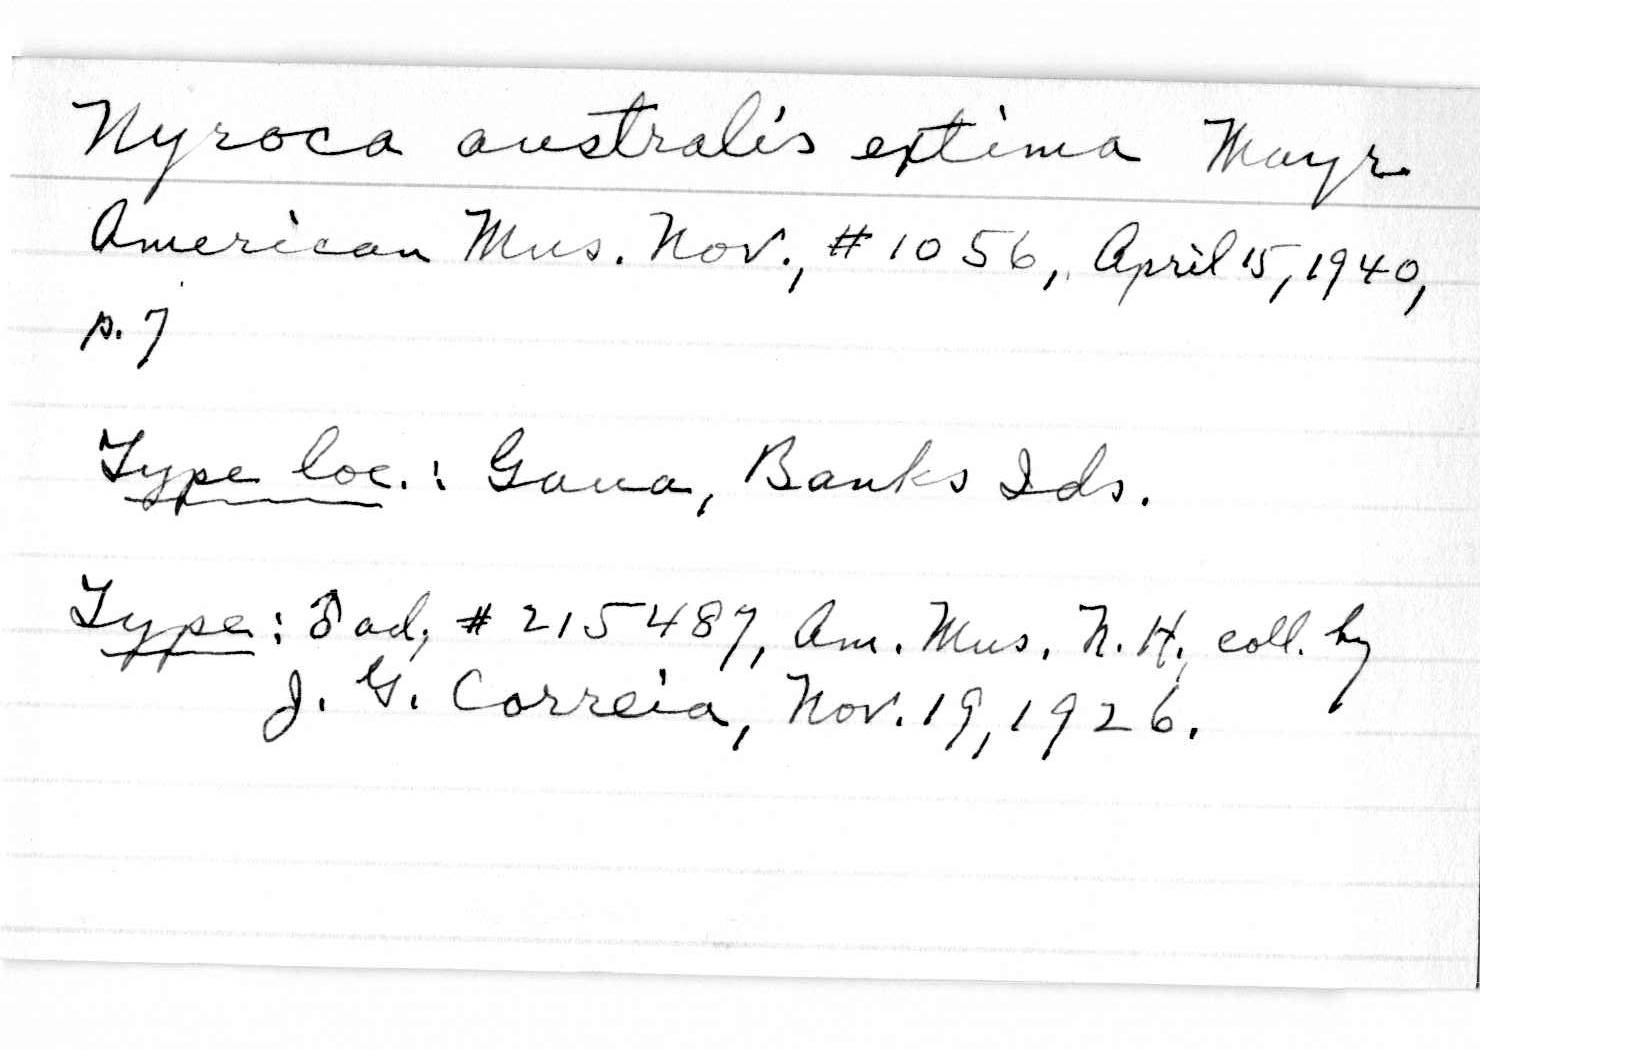 Nyroca australis extima Mayr
American Mus. Nov., #1056, April 15, 1940,
p. 7
Type loc.: Gaua, Banks Ids.
Type: ♂ ad, #215487, Am. Mus. N. H., coll. by
J. G. Correia, Nov. 19, 1926.